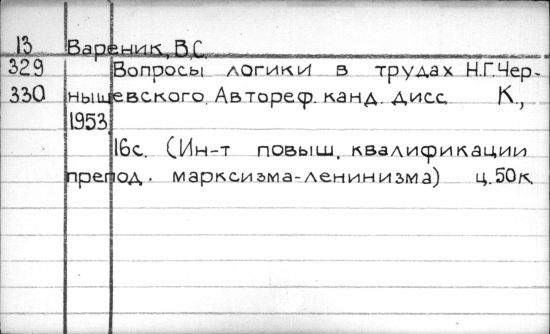 13 Вареник, В.С.
329 Вопросы логики в трудах Н.Г.Чер-
330 нышевского. Автореф. канд. дисс. К.,
1953.
16с. (Ин-т повыш. квалификации
препод. марксизма-ленинизма) ц.50к.